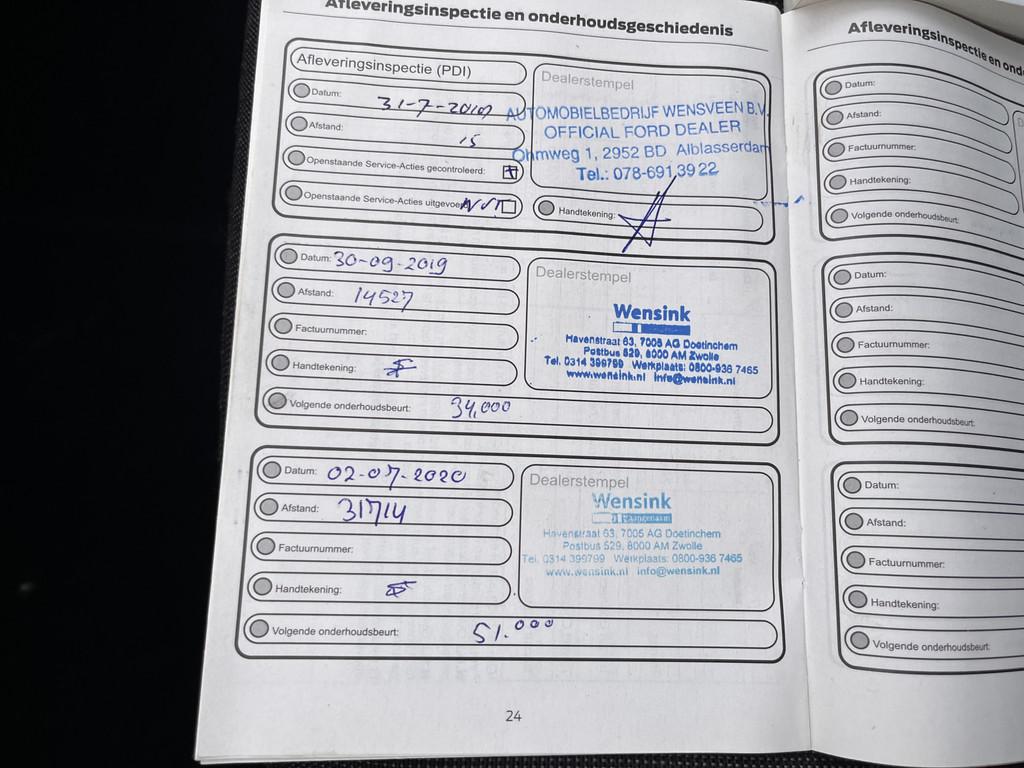 Afleveringsinspectie en onderhoudsgeschiedenis
Afleveringsinspectie (PDI)
Datum: 31-7-2019
Afstand: 15
Openstaande Service-Acties gecontroleerd:
Openstaande Service-Acties uitgevoerd
Dealerstempel
AUTOMOBIELBEDRIJF WENSVEEN B.V.
OFFICIAL FORD DEALER
Ohmweg 1, 2952 BD Alblasserdam
Tel.: 078-691 39 22
Handtekening:
Datum: 30-09-2019
Afstand: 14527
Factuurnummer:
Handtekening:
Volgende onderhoudsbeurt: 34,000
Dealerstempel
Wensink
Havenstraat 63, 7005 AG Doetinchem
Postbus 529, 8000 AM Zwolle
Tel. 0314 399799 Werkplaats: 0800-936 7465
www.wensink.nl info@wensink.nl
Datum: 02-07-2020
Afstand: 31714
Factuurnummer:
Handtekening:
Volgende onderhoudsbeurt: 51.000
Dealerstempel
Wensink
Havenstraat 63, 7005 AG Doetinchem
Postbus 529, 8000 AM Zwolle
Tel. 0314 399799 Werkplaats: 0800-936 7465
www.wensink.nl info@wensink.nl
24
Afleveringsinspectie en ond
Datum:
Afstand:
Factuurnummer:
Handtekening:
Volgende onderhoudsbeurt:
Datum:
Afstand:
Factuurnummer:
Handtekening:
Volgende onderhoudsbeurt:
Datum:
Afstand:
Factuurnummer:
Handtekening:
Volgende onderhoudsbeurt: